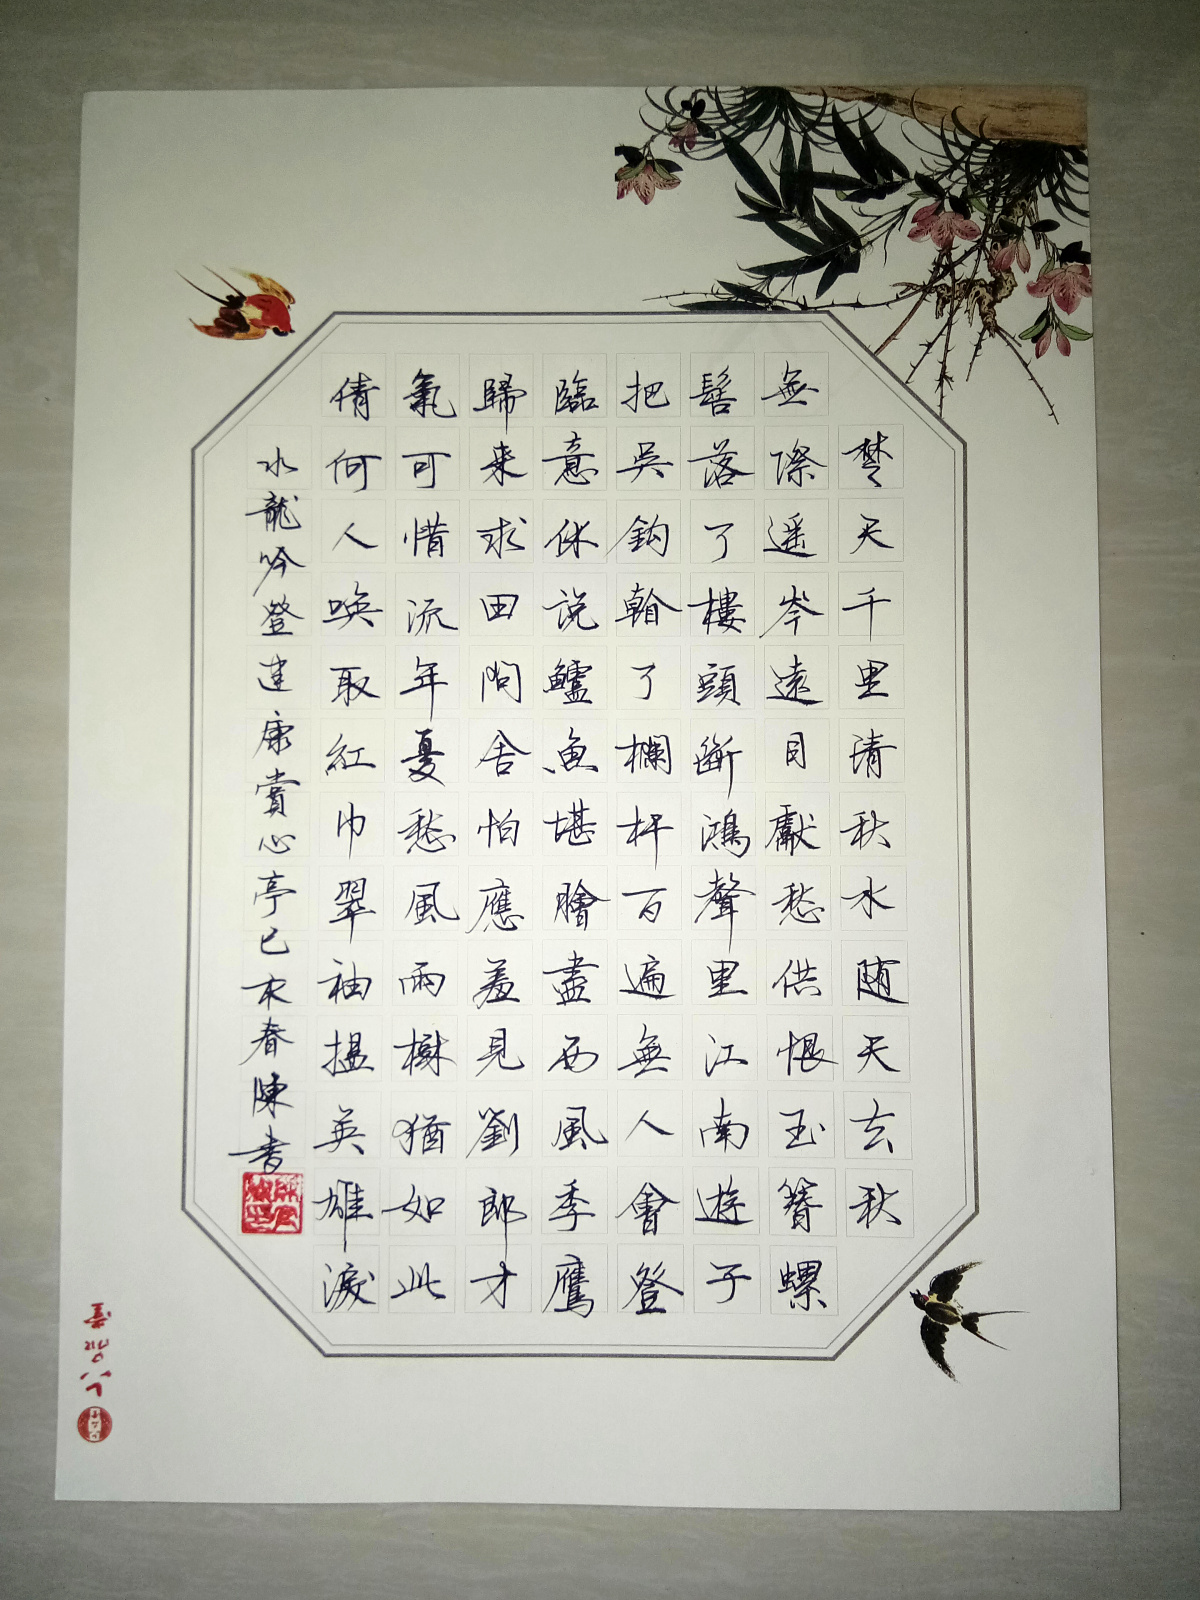 楚天千里清秋水随天去秋
無際遥岑遠目獻愁供恨玉簪螺
髻落了樓頭斷鴻聲里江南遊子
把吳鈎翰了欄杆百遍無人會登
臨意休説鱸魚堪膾盡西風季鷹
歸来求田問舍怕應羞見劉郎才
氣可惜流年憂愁風雨樹猶如此
倩何人唤取紅巾翠袖揾英雄淚
水龍吟登建康賞心亭己未春陳書